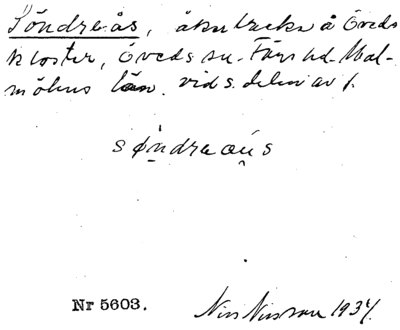 Söndre ås, åkertäckt å Öveds
kloster, Öveds sn. Färs hd. Mal-
möhus län. vid s. delen av f.
søndre aus
Nr 5603.
Nils Nilsson 1934.